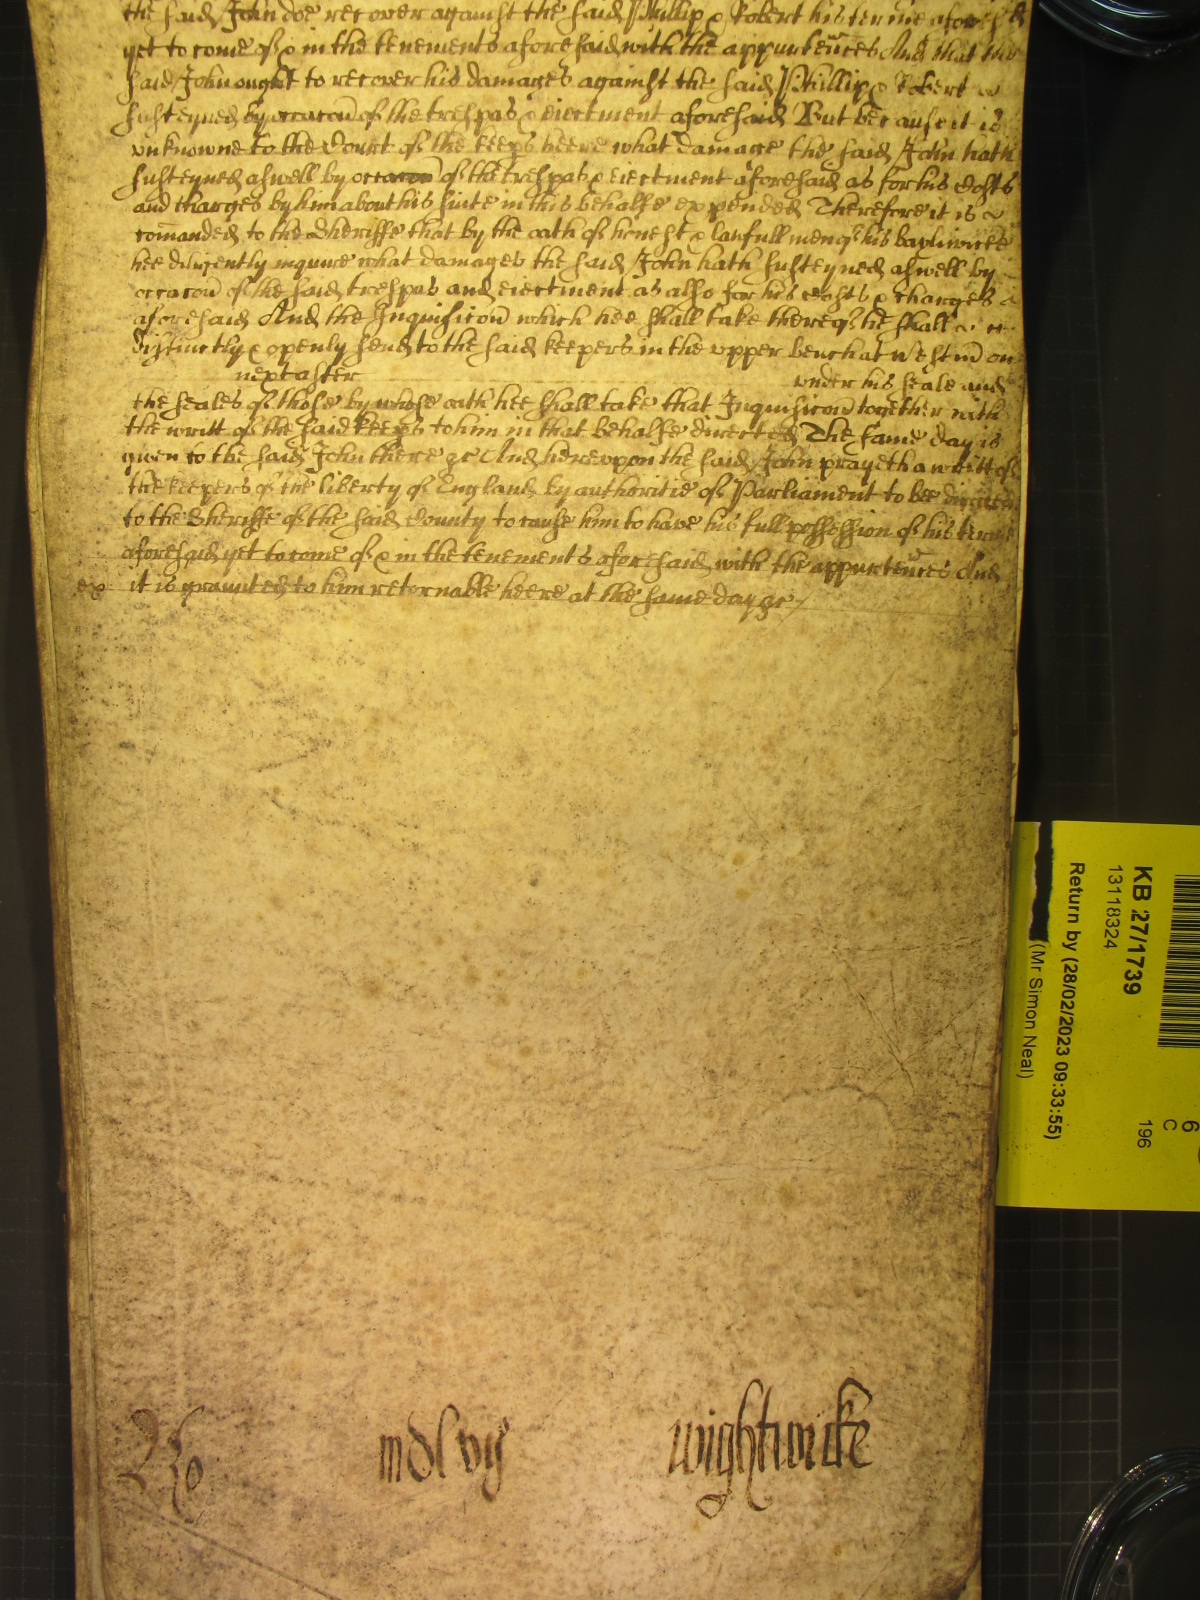 the said John doe recover against the said Phillip & Robert his terme aforesaid
yet to come of & in the tenements aforesaid with the appurtēnces And that the
said John ought to recover his damages against the said Phillip & Robert
susteyned by occacōn of the trespas & eiectment aforesaid But because it is
unknowne to the Court of the keeps heere what damage the said John hath
susteyned aswell by occacon of the trespas & eiectment aforesaid as for his Costs
and charges by him about his suite in this behalfe expended Therefore it is
comanded to the Sheriffe that by the oath of honest & lawfull men of his bayliwicke
hee diligently inquire what damages the said John hath susteyned aswell by
occacōn of the said trespas and eiectment as also for his Costs & charges
aforesaid And the Inquisicōn which hee shall take thereof he shall
distinctly & openly send to the said keepers in the upper bench at Westm̄ on
next after under his seale and
the seales of those by whose oath hee shall take that Inquisicōn together with
the writt of the said keeps to him in that behalfe directed The same day is
given to the said John there &c And hereupon the said John prayeth a writt of
the keepers of the liberty of England by authoritie of Parliament to bee directed
to the Sheriffe of the said County to cause him to have his full possession of his terme
aforesaid yet to come of & in the tenements aforesaid with the appurtēnces And
ex it is graunted to him retornable heere at the same day &c
mdlvij wightwicke
KB 27/1739
13118324
Return by (28/02/2023 09:33:55)
(Mr Simon Neal)
6
C
196